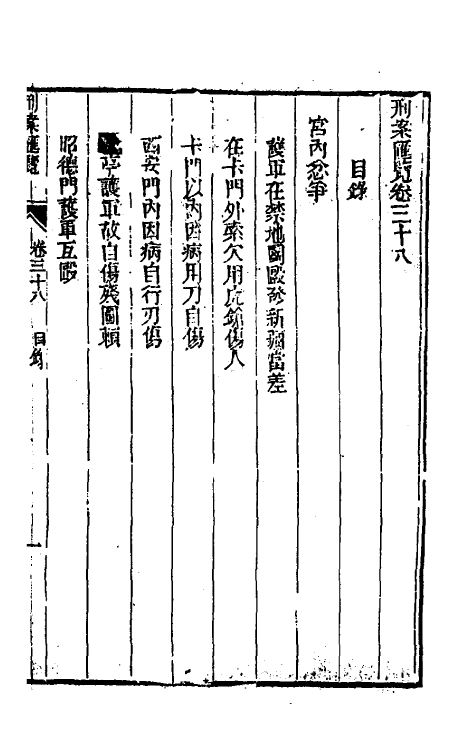 刑案匯覽卷三十八
目錄
宮內忿爭
護軍在禁地鬬毆發新疆當差
在卡門外索欠用虎鎗傷人
卡門以內因病用刀自傷
西安門內因病自行刃傷
亭護軍故自傷殘圖賴
昭德門護軍互毆
刑案匯覽 卷三十八 目錄